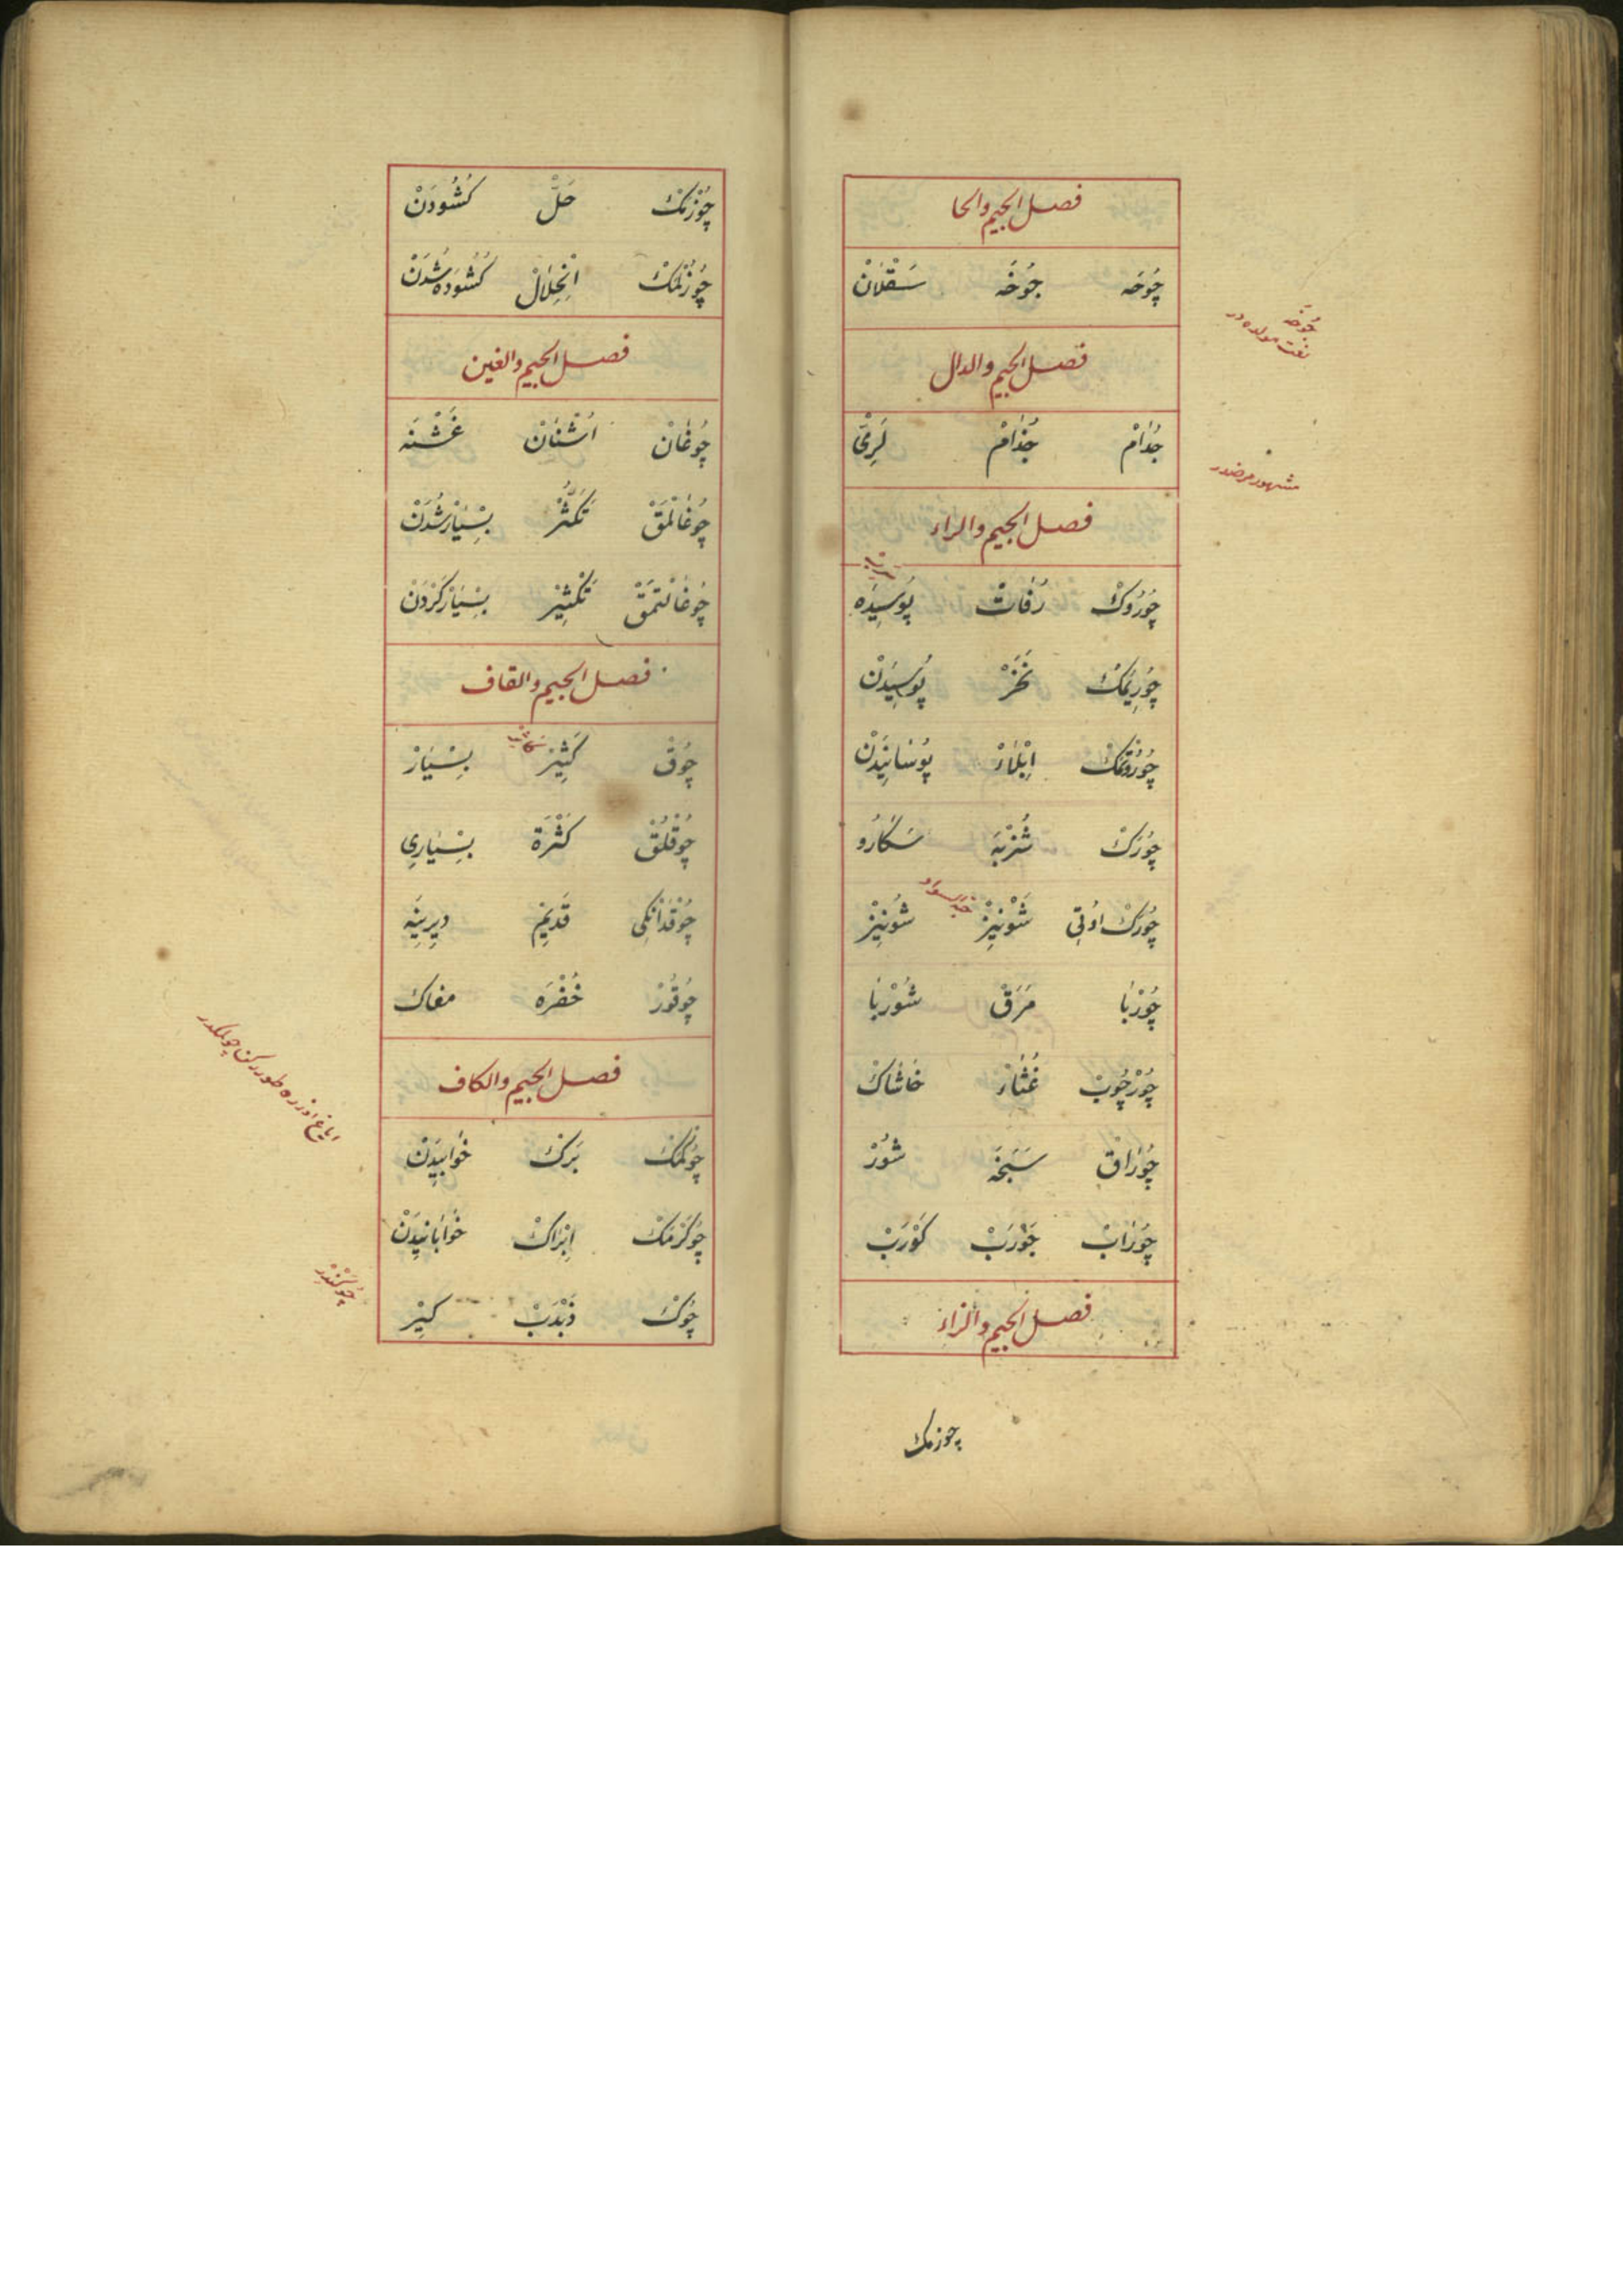 فصل الجيم والحا
چُوخَه جُوخَه سَقْلَانْ
جُوخَه
لغت مولده در
فصل الجيم والدال
جُذَامْ جُذَامْ لَرِىْ
مشهور مرضدر
فصل الجيم والراء
چُورُوكْ رُفَاتْ پُوسِيدَه
چُورِيمَكْ نَخَرْ پُوسِيدَنْ
چُورُوتْمَكْ اِبْلَاءْ پُوسَانِيدَنْ
چُورَكْ شُرْبَه سَكَارُو
چُورَكْ اوُتِى شَوْنِيزْ شُونِيزْ
حبه سودا
چُورْبَا مَرَقْ شُورْبَا
چُورْچُوبْ غُثَاءْ خَاشَاكْ
چُورَاقْ سَبَخَه شُورْ
چُورَابْ جَوْرَبْ كَوْرَبْ
فصل الجيم والزاء
چوزمك
چُوزْمَكْ حَلّ كُشُودَنْ
چُوزُلْمَكْ اِنْحِلَالْ كُشُودَه شُدَنْ
فصل الجيم والغين
چُوغَانْ اُشْنَانْ غَشْنَه
چُوغَالْمَقْ تَكَثُّرْ بِسْيَارْ شُدَنْ
چُوغَالْتمَقْ تَكْثِيرْ بِسْيَارْ كَرْدَنْ
فصل الجيم والقاف
چُوقْ كَثِيرْ بِسْيَارْ
چُوقْلُقْ كَثْرَة بِسْيَارِى
چُوقْدَانْكِى قَدِيمْ دِيرِينَه
چُوقُورْ حُفْرَه مغاك
فصل الجيم والكاف
چُوكْمَكْ بَرَكْ خُوَابِيدَنْ
اياغ اوزره طوررکن چوکمکدر
چُوكَرْمَكْ اِبْرَاكْ خُوَابَانِيدَنْ
چُوكْ ذَبْذَبْ كِيرْ